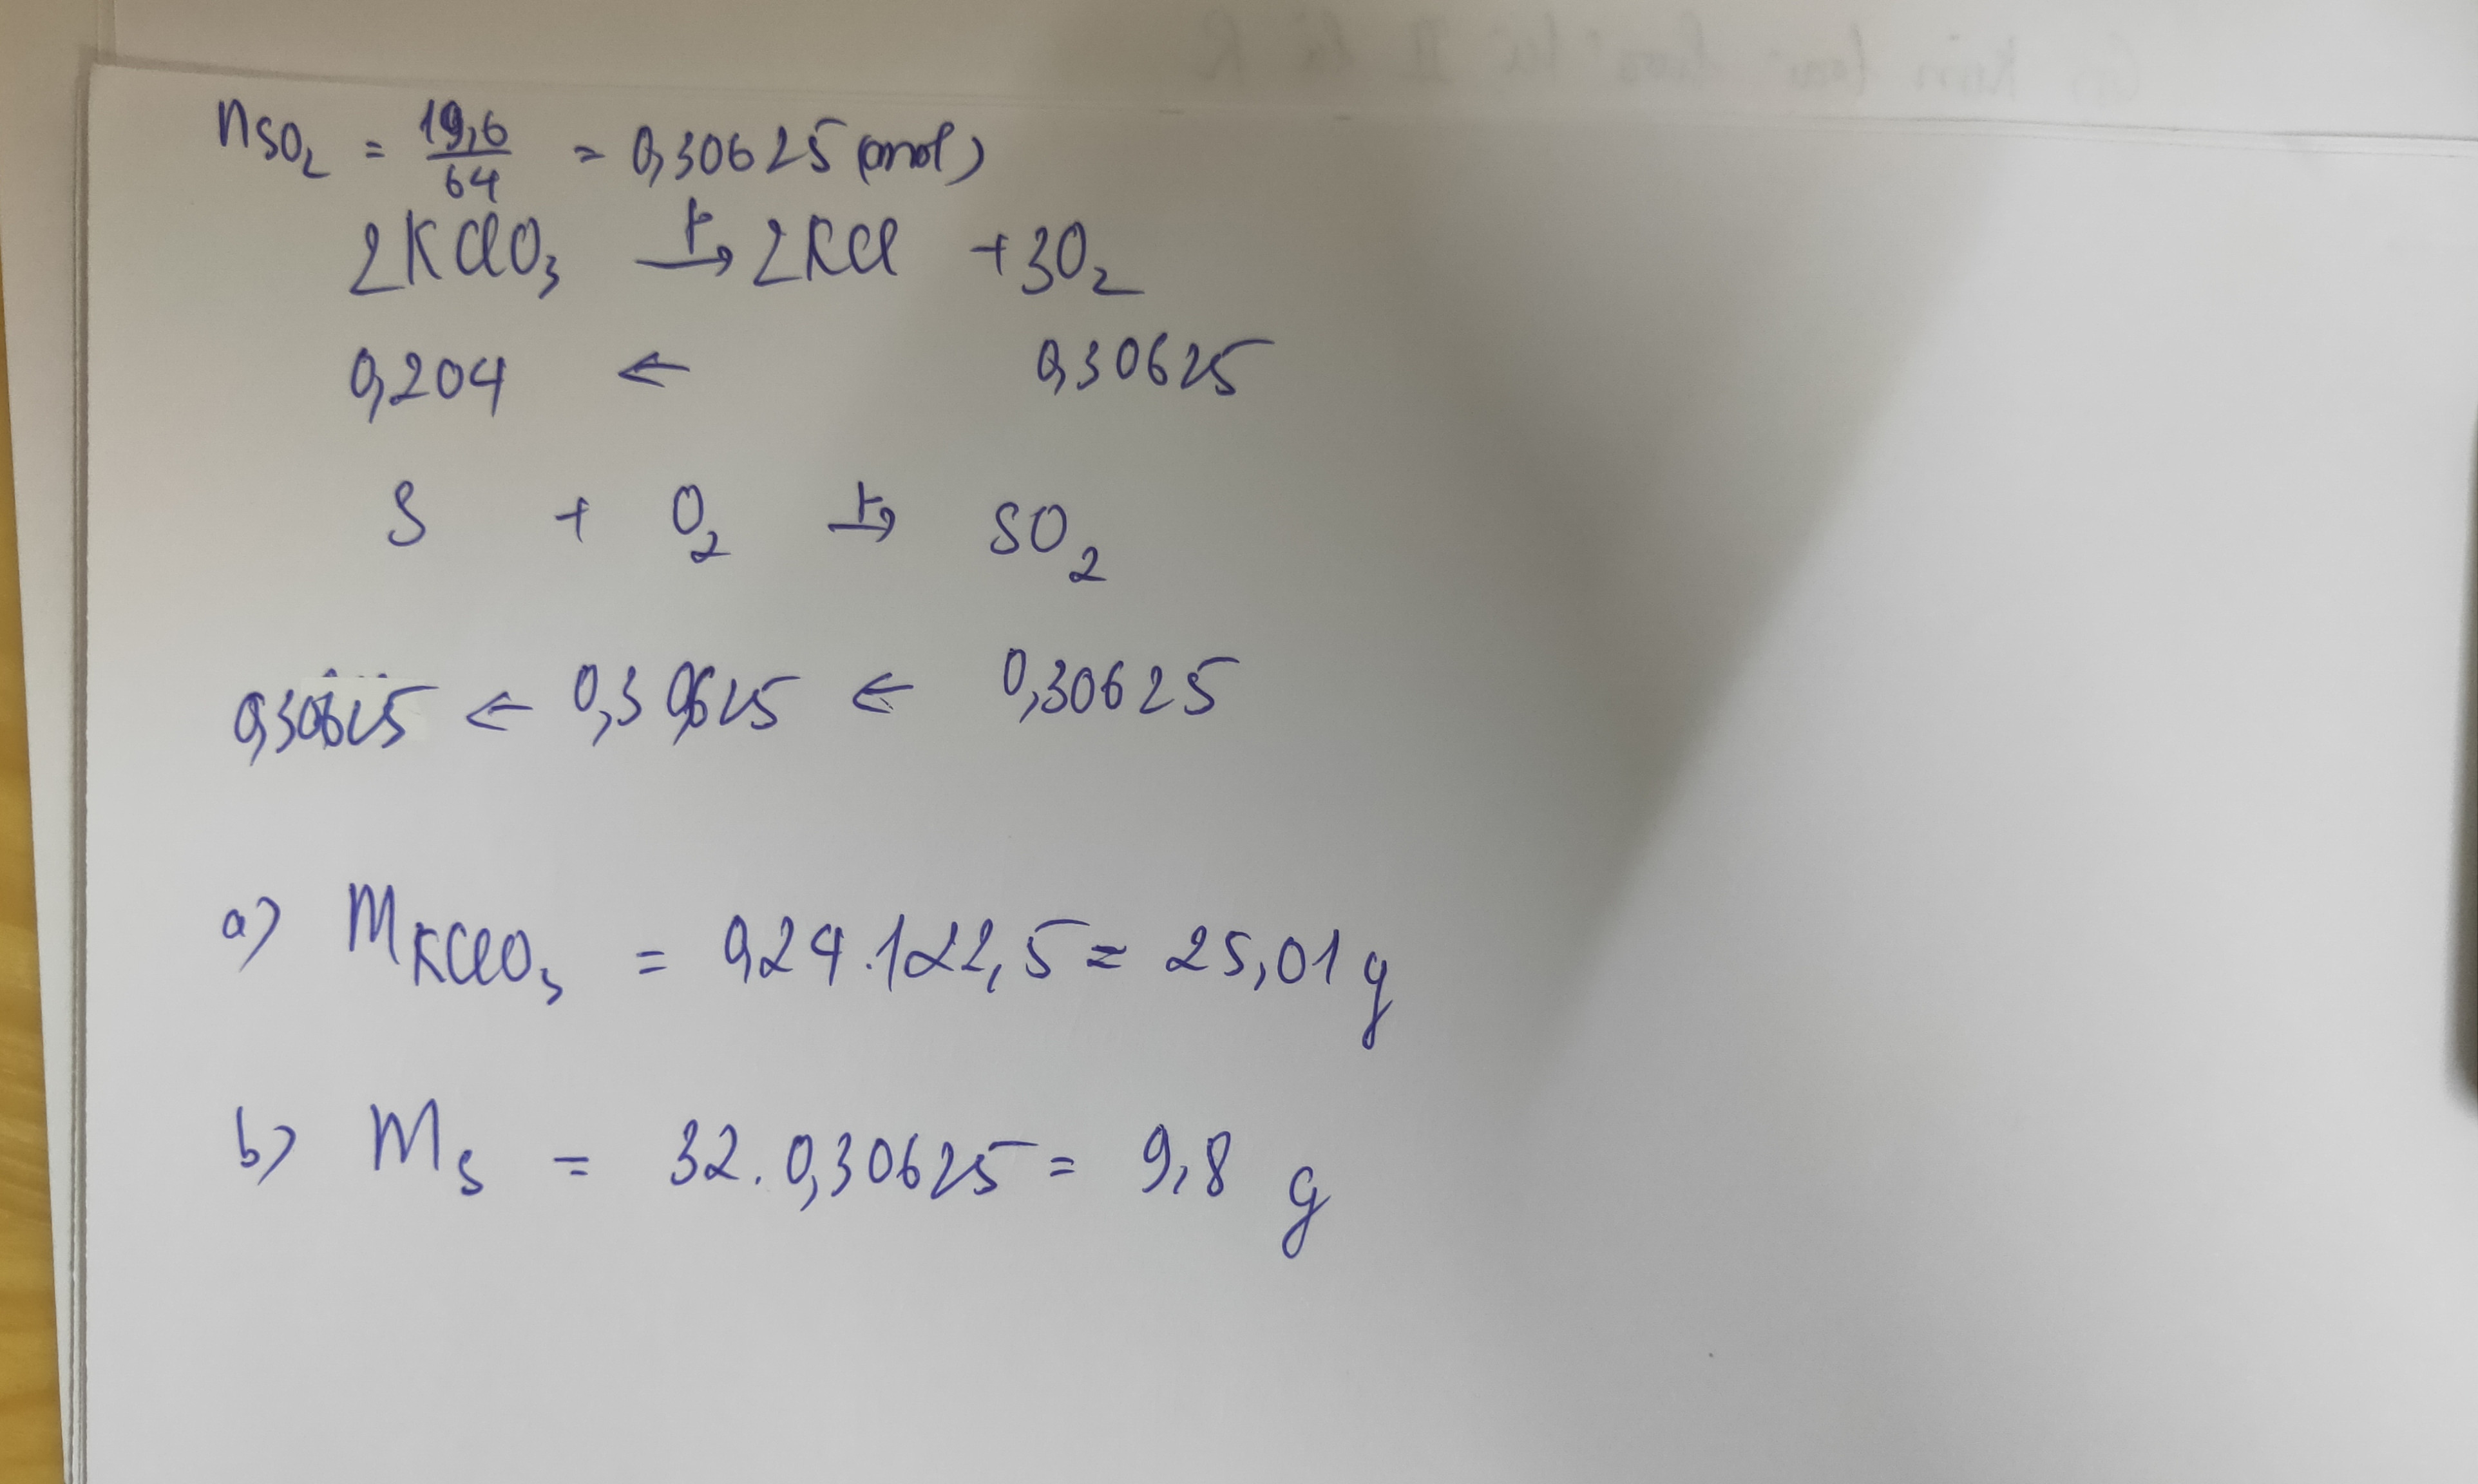 nSO₂ = 19,6/64 = 0,30625 (mol)
2KClO₃ →(t°) 2KCl + 3O₂
0,204 ← 0,30625
S + O₂ →(t°) SO₂
0,30625 ← 0,30625 ← 0,30625
a) mKClO₃ = 0,24.122,5 = 25,01 g
b) mS = 32.0,30625 = 9,8 g